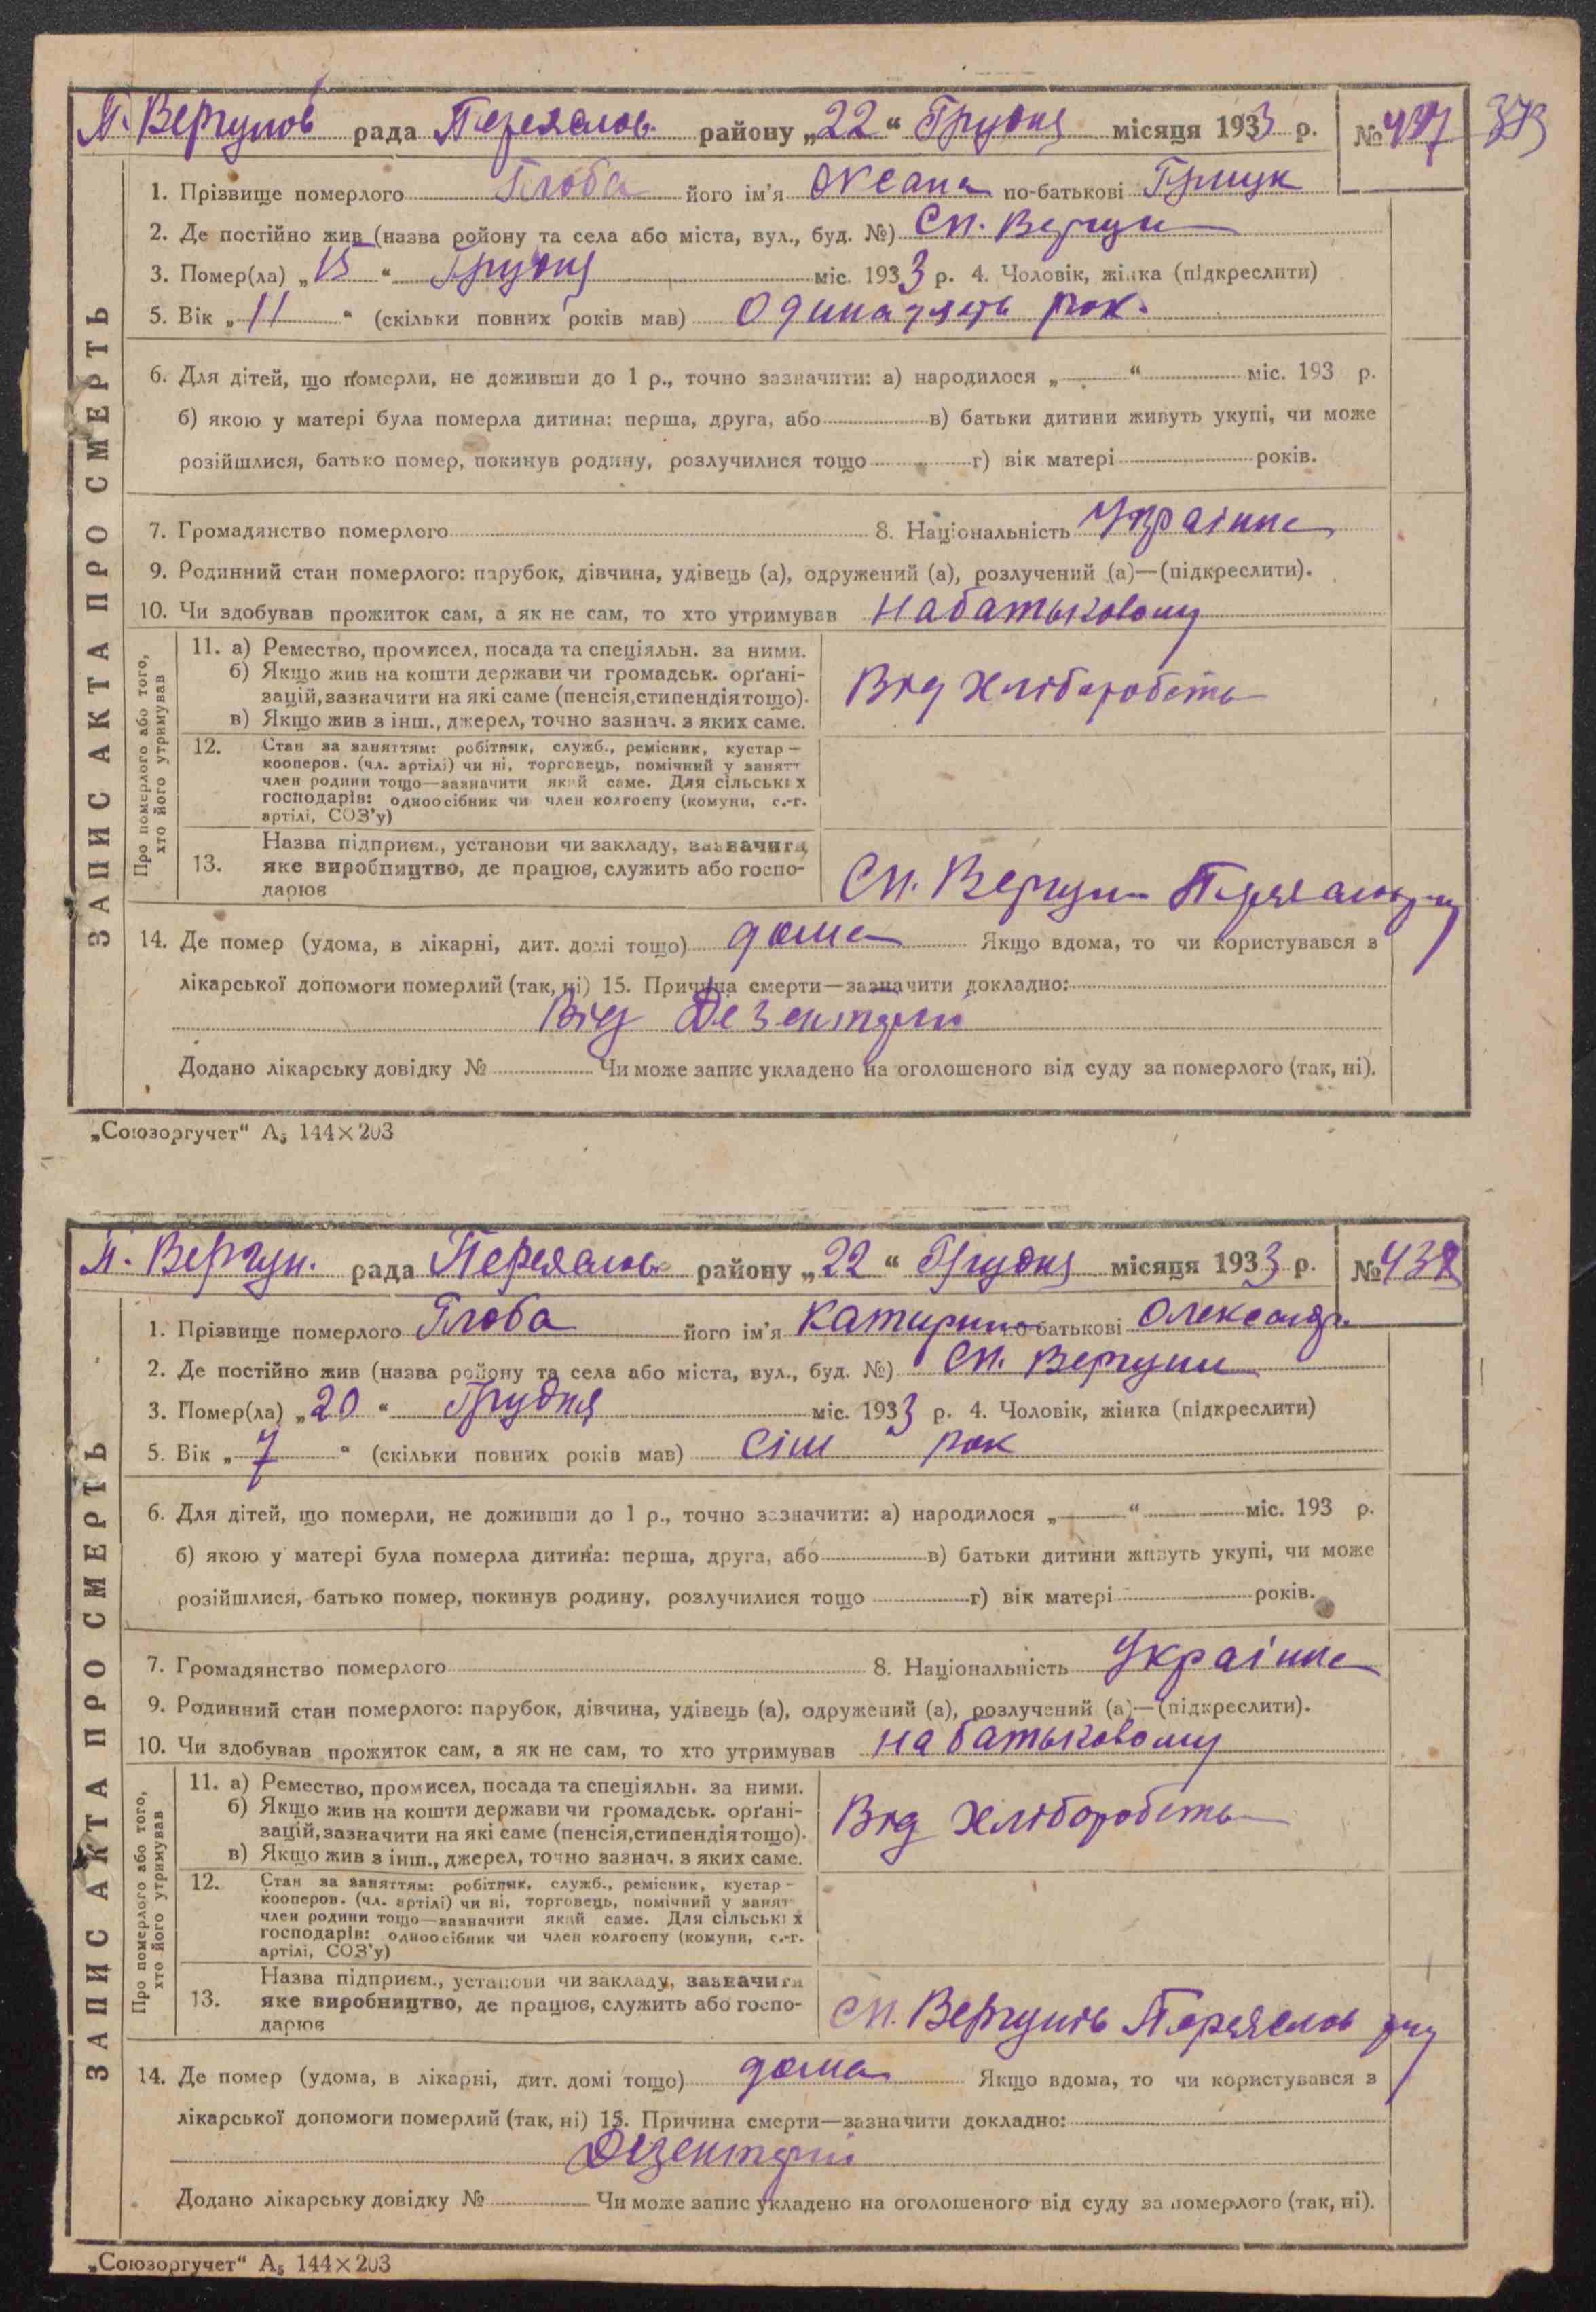 П. Вергунов рада Переяслов. району „22“ Грудня місяця 1933 р. № 437 373
1. Прізвище померлого Глоба його ім'я Оксана по-батькові
2. Де постійно жив (назва району та села або міста, вул., буд. №) Сп. Вергун
3. Помер(ла) „15“ Грудня міс. 1933 р. 4. Чоловік, жінка (підкреслити)
5. Вік „11“ (скільки повних років мав) Одинадцять рок.
6. Для дітей, що померли, не доживши до 1 р., точно зазначити: а) народилося „ “ міс. 193 р.
б) якою у матері була померла дитина: перша, друга, або в) батьки дитини живуть укупі, чи може
розійшлися, батько помер, покинув родину, розлучилися тощо г) вік матері років.
7. Громадянство померлого 8. Національність Україн
9. Родинний стан померлого: парубок, дівчина, удівець (а), одружений (а), розлучений (а)—(підкреслити).
10. Чи здобував прожиток сам, а як не сам, то хто утримував На батьковому
Про померлого або того,
хто його утримував
11. а) Ремество, промисел, посада та спеціяльн. за ними.
б) Якщо жив на кошти держави чи громадськ. орґані-
зацій, зазначити на які саме (пенсія, стипендія тощо).
в) Якщо жив з інш., джерел, точно зазнач. з яких саме.
Від Хліборобств
12. Стан за заняттям: робітник, служб., ремісник, кустар—
кооперов. (чл. артілі) чи ні, торговець, помічний у занятт
член родини тощо—зазначити який саме. Для сільських
господарів: одноосібник чи член колгоспу (комуни, с.-г.
артілі, СОЗ'у)
13. Назва підприєм., установи чи закладу, зазначити
яке виробництво, де працює, служить або госпо-
дарює
Сп. Вергун Переяслов р-ну
14. Де помер (удома, в лікарні, дит. домі тощо) дома Якщо вдома, то чи користувався з
лікарської допомоги померлий (так, ні) 15. Причина смерти—зазначити докладно:
Від Дезентерії
Додано лікарську довідку № Чи може запис укладено на оголошеного від суду за померлого (так, ні).
ЗАПИС АКТА ПРО СМЕРТЬ
„Союзоргучет“ А₅ 144×203
П. Вергун. рада Переяслов району „22“ Грудня місяця 1933 р. № 438
1. Прізвище померлого Глоба його ім'я Катирина по-батькові Олександр.
2. Де постійно жив (назва району та села або міста, вул., буд. №) Сп. Вергуни
3. Помер(ла) „20“ Грудня міс. 1933 р. 4. Чоловік, жінка (підкреслити)
5. Вік „7“ (скільки повних років мав) Сім рок
6. Для дітей, що померли, не доживши до 1 р., точно зазначити: а) народилося „ “ міс. 193 р.
б) якою у матері була померла дитина: перша, друга, або в) батьки дитини живуть укупі, чи може
розійшлися, батько помер, покинув родину, розлучилися тощо г) вік матері років.
7. Громадянство померлого 8. Національність Україн
9. Родинний стан померлого: парубок, дівчина, удівець (а), одружений (а), розлучений (а)—(підкреслити).
10. Чи здобував прожиток сам, а як не сам, то хто утримував На батьковому
Про померлого або того,
хто його утримував
11. а) Ремество, промисел, посада та спеціяльн. за ними.
б) Якщо жив на кошти держави чи громадськ. орґані-
зацій, зазначити на які саме (пенсія, стипендія тощо).
в) Якщо жив з інш., джерел, точно зазнач. з яких саме.
Від Хліборобств
12. Стан за заняттям: робітник, служб., ремісник, кустар-
кооперов. (чл. артілі) чи ні, торговець, помічний у занят
член родини тощо—зазначити який саме. Для сільських
господарів: одноосібник чи член колгоспу (комуни, с.-г.
артілі, СОЗ'у)
13. Назва підприєм., установи чи закладу, зазначити
яке виробництво, де працює, служить або госпо-
дарює
Сп. Вергунів Переяслов р-ну
14. Де помер (удома, в лікарні, дит. домі тощо) дома Якщо вдома, то чи користувався з
лікарської допомоги померлий (так, ні) 15. Причина смерти—зазначити докладно:
Дізентерії
Додано лікарську довідку № Чи може запис укладено на оголошеного від суду за померлого (так, ні).
ЗАПИС АКТА ПРО СМЕРТЬ
„Союзоргучет“ А₅ 144×203